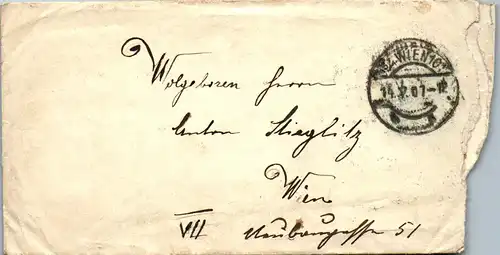 WIEN 107
14.V.07-12
Wolgeboren Herrn
Anton Stieglitz
Wien
VII Neubaugasse 51